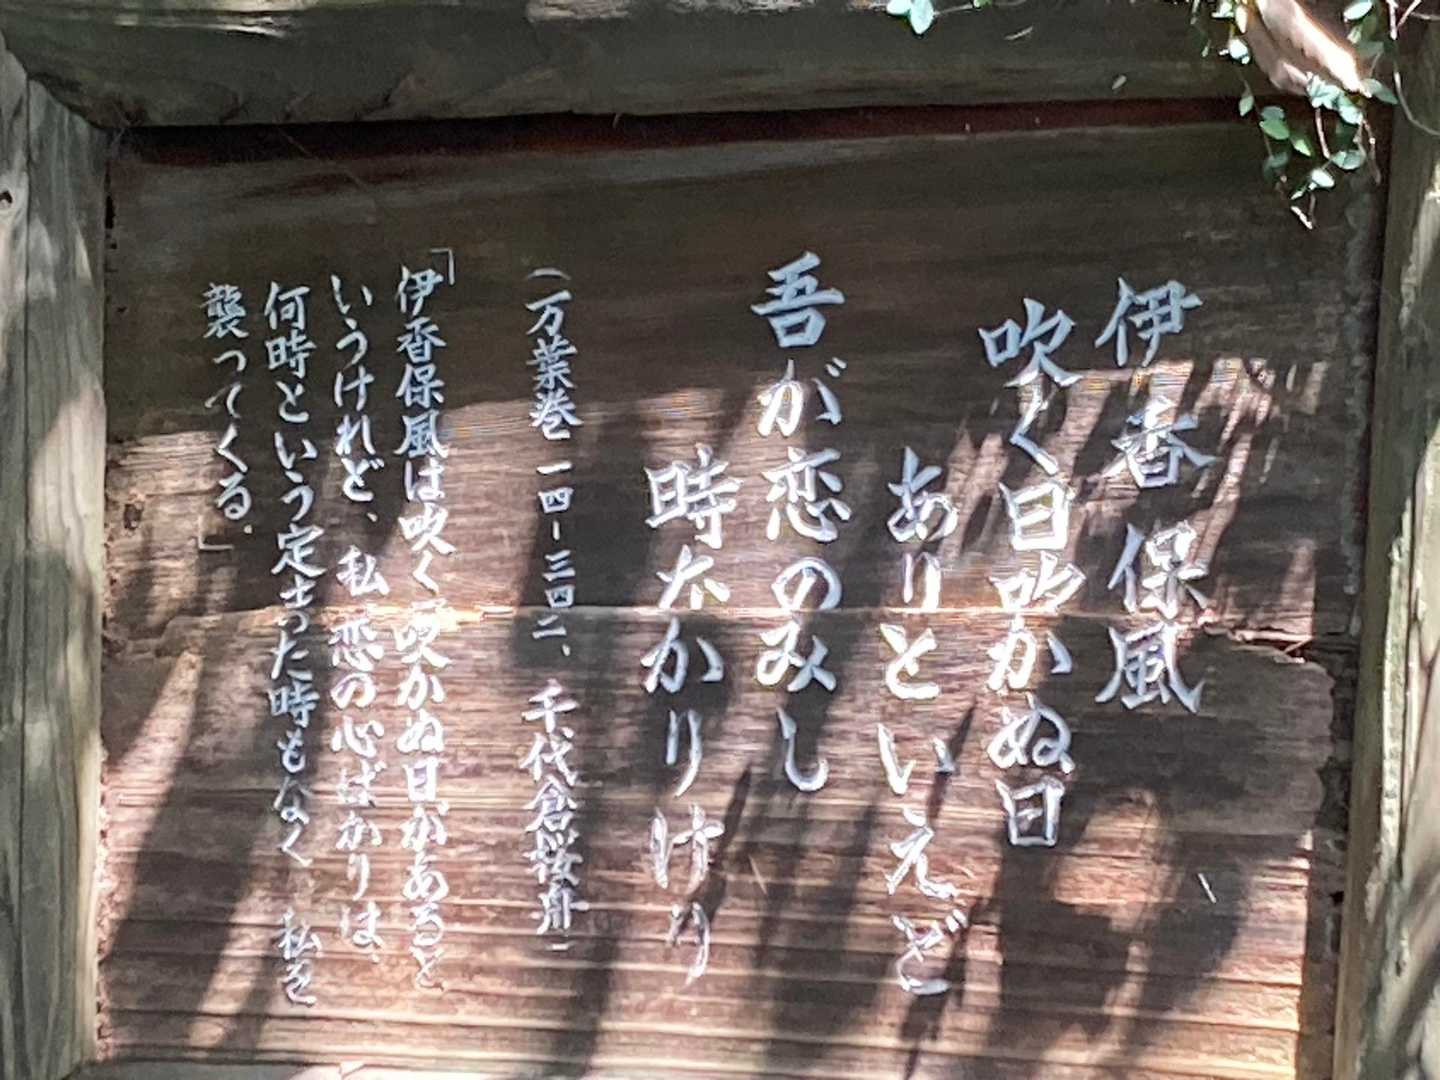 伊香保風
吹く日吹かぬ日
ありといえど
吾が恋のみし
時なかりけり
(万葉巻 一四-三四二二、千代倉桜舟)
「伊香保風は吹く吹かぬ日があると
いうけれど、私恋の心ばかりは、
何時という定まった時もなく、私を
襲ってくる.」